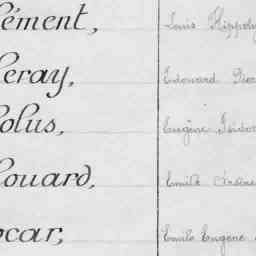 lément, Louis Hippoly
leray, Edouard
olus, Eugène Isidor
louard, Emile Arsène
ocar, Emile Eugene